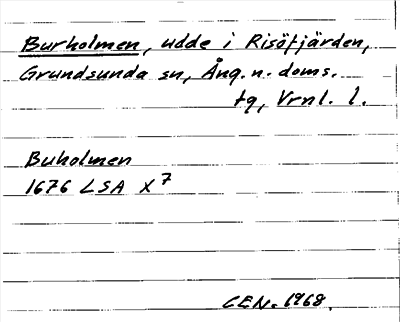 Burholmen, udde i Risöfjärden,
Grundsunda sn, Ång. n. doms.
tg, Vrnl. l.
Buholmen
1676 LSA X7
CEN. 1968.